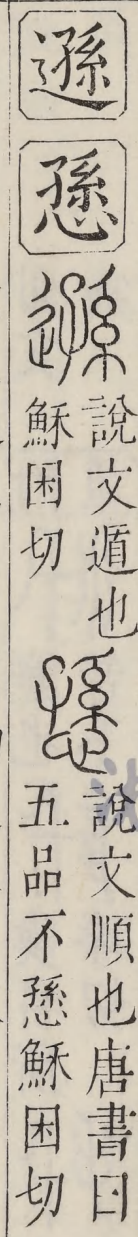 遜
愻
遜 說文遁也
穌困切
愻 說文順也唐書曰
五品不愻穌困切